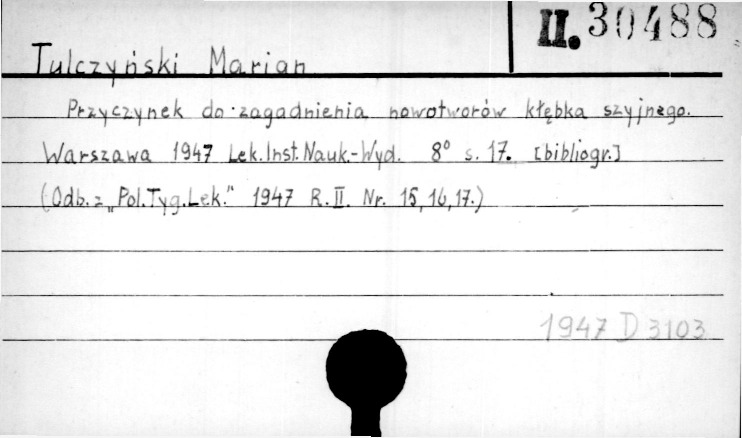 II. 30488
Tulczyński Marian
Przyczynek do zagadnienia nowotworów kłębka szyjnego.
Warszawa 1947 Lek. Inst. Nauk.-Wyd. 8° s. 17. [bibliogr.]
(Odb. z „Pol. Tyg. Lek." 1947 R. II. Nr. 15, 16, 17.)
1947 D 3103